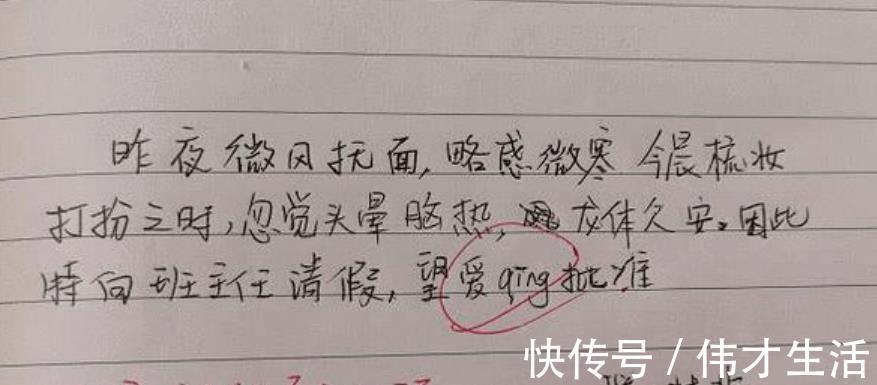 昨夜微风抚面,略感微寒 今晨梳妆
打扮之时,忽觉头晕脑热, 龙体欠安。因此
特向班主任请假,望爱qing批准
快传号 / 伟才生活